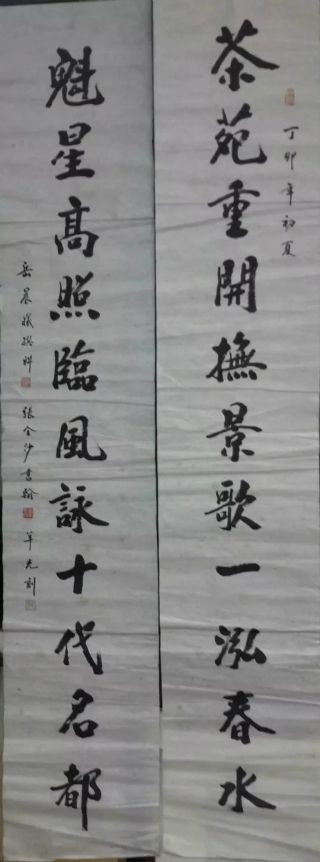 茶苑重開撫景歌一泓春水
丁卯年初夏
魁星高照臨風詠十代名都
岳晨曦撰聯 張金沙書翰 單先刻